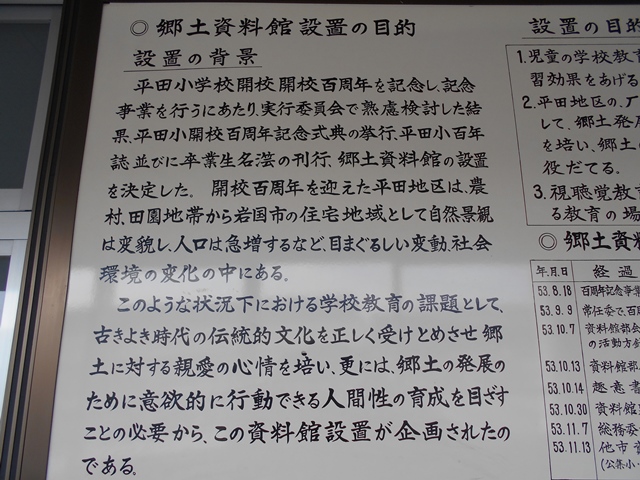 ◎ 郷土資料館設置の目的
設置の背景
平田小学校開校開校百周年を記念し、記念
事業を行うにあたり、実行委員会で熟慮検討した結
果、平田小開校百周年記念式典の挙行、平田小百年
誌並びに卒業生名簿の刊行、郷土資料館の設置
を決定した。 開校百周年を迎えた平田地区は、農
村、田園地帯から岩国市の住宅地域として自然景観
は変貌し、人口は急増するなど、目まぐるしい変動、社会
環境の変化の中にある。
このような状況下における学校教育の課題として、
古きよき時代の伝統的文化を正しく受けとめさせ郷
土に対する親愛の心情を培い、更には、郷土の発展の
ために意欲的に行動できる人間性の育成を目ざす
ことの必要から、この資料館設置が企画されたの
である。
設置の目的
1. 児童の学校教育
習効果をあげる
2. 平田地区の、
して、郷土発展
を培い、郷土の
役だてる。
3. 視聴覚教
る教育の場
◎ 郷土資料
年.月.日 経過
53.8.18 百周年記念事業
53.9.9 常任委で、百周
53.10.7 資料館部会
の活動方針
53.10.13 資料館部
53.10.14 趣意書
53.10.30 資料館
53.11.7 総務委
53.11.13 他市
(公楽小